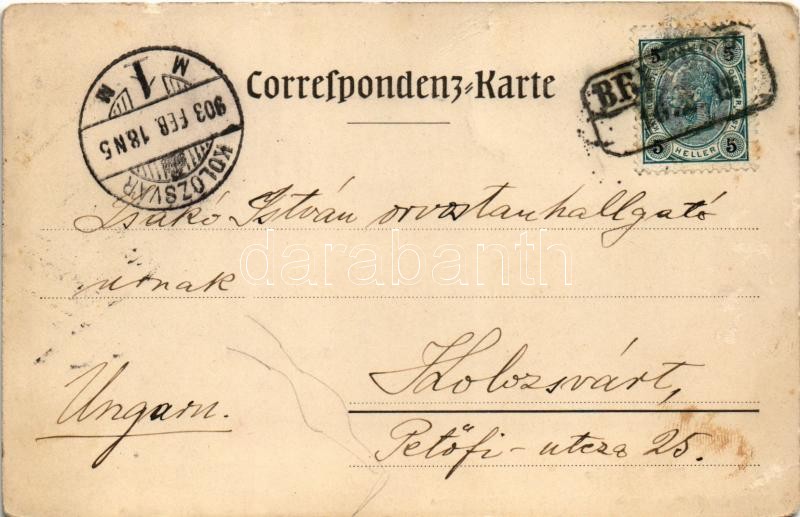 Correspondenz-Karte
KOLOZSVÁR
903 FEB. 18 N5
M 1 M
5 5
5 HELLER 5
Csákó István orvostanhallgató
úrnak
darabanth
Kolozsvárt,
Ungarn.
Petőfi-utcza 25.